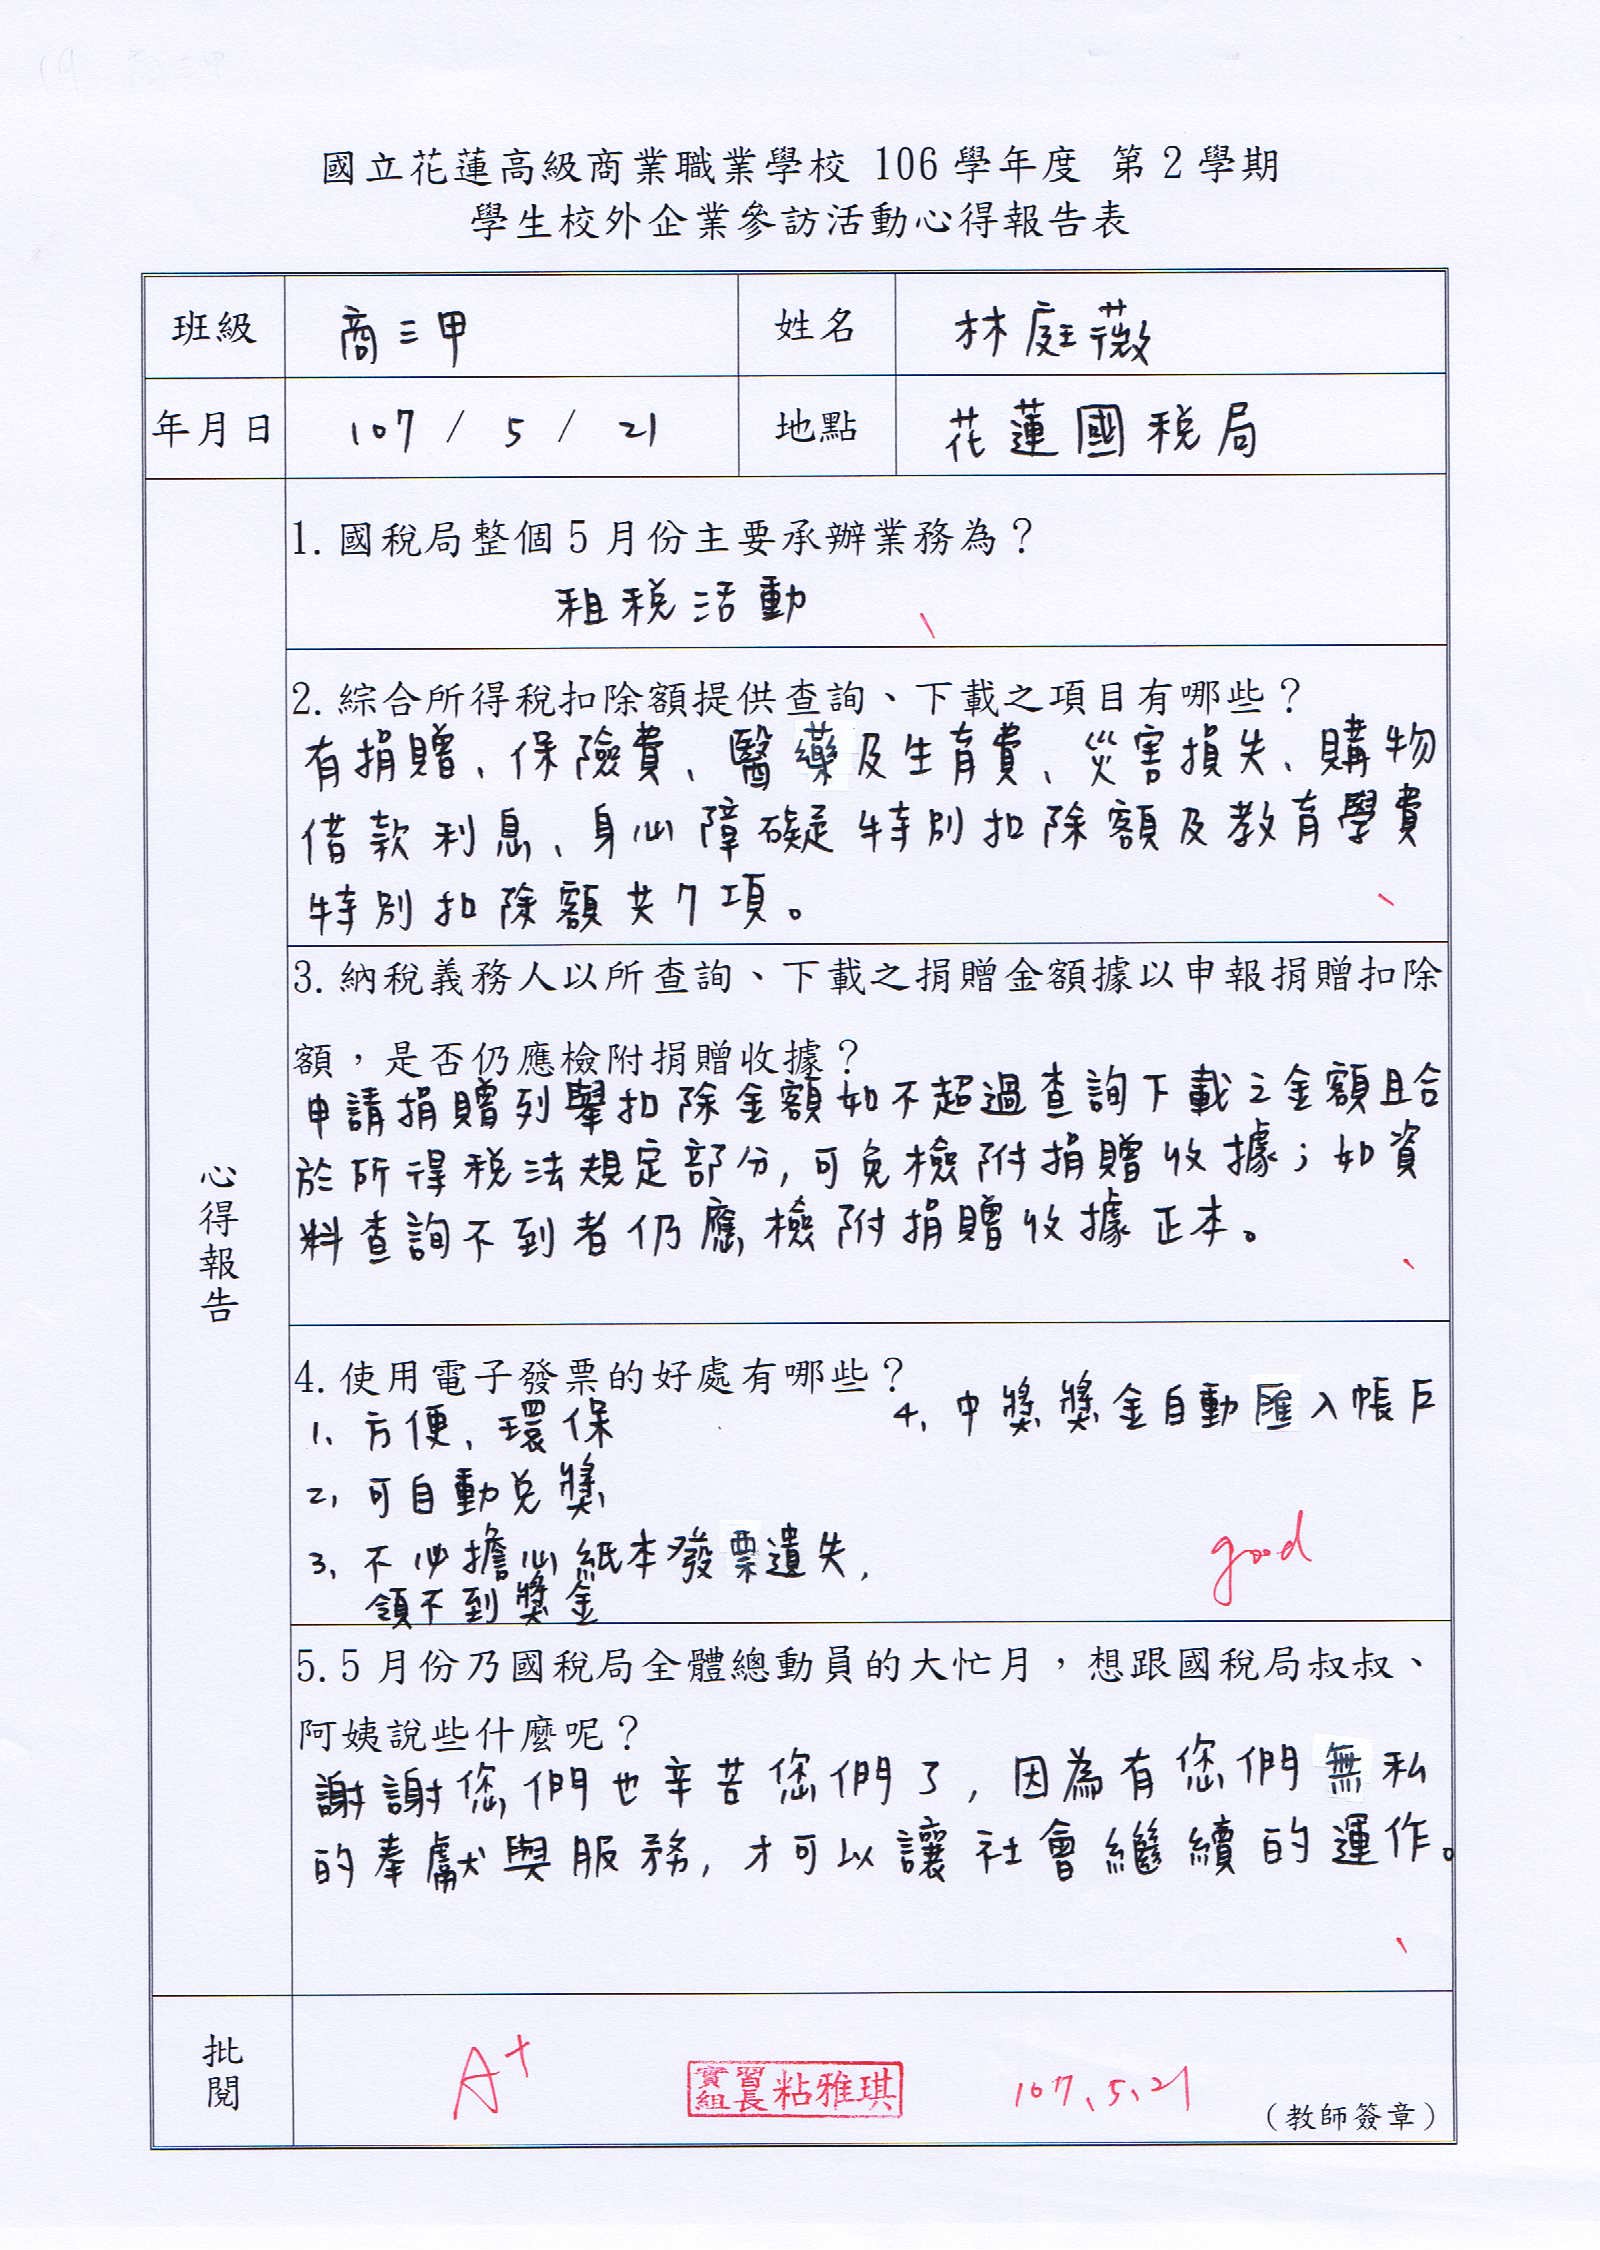 國立花蓮高級商業職業學校 106 學年度 第 2 學期
學生校外企業參訪活動心得報告表
班級 商三甲 姓名 林庭薇
年月日 107 / 5 / 21 地點 花蓮國稅局
心得報告
1. 國稅局整個 5 月份主要承辦業務為？
租稅活動
2. 綜合所得稅扣除額提供查詢、下載之項目有哪些？
有捐贈、保險費、醫藥及生育費、災害損失、購物
借款利息、身心障礙特別扣除額及教育學費
特別扣除額共7項。
3. 納稅義務人以所查詢、下載之捐贈金額據以申報捐贈扣除
額，是否仍應檢附捐贈收據？
申請捐贈列舉扣除金額如不超過查詢下載之金額且合
於所得稅法規定部分,可免檢附捐贈收據；如資
料查詢不到者仍應檢附捐贈收據正本。
4. 使用電子發票的好處有哪些？
1、方便、環保
2、可自動兌獎
3、不必擔心紙本發票遺失,
領不到獎金
4、中獎獎金自動匯入帳戶
good
5. 5 月份乃國稅局全體總動員的大忙月，想跟國稅局叔叔、
阿姨說些什麼呢？
謝謝您們也辛苦您們了,因為有您們無私
的奉獻與服務,才可以讓社會繼續的運作。
批閱
A+
實習組長 粘雅琪
107、5、21
（教師簽章）